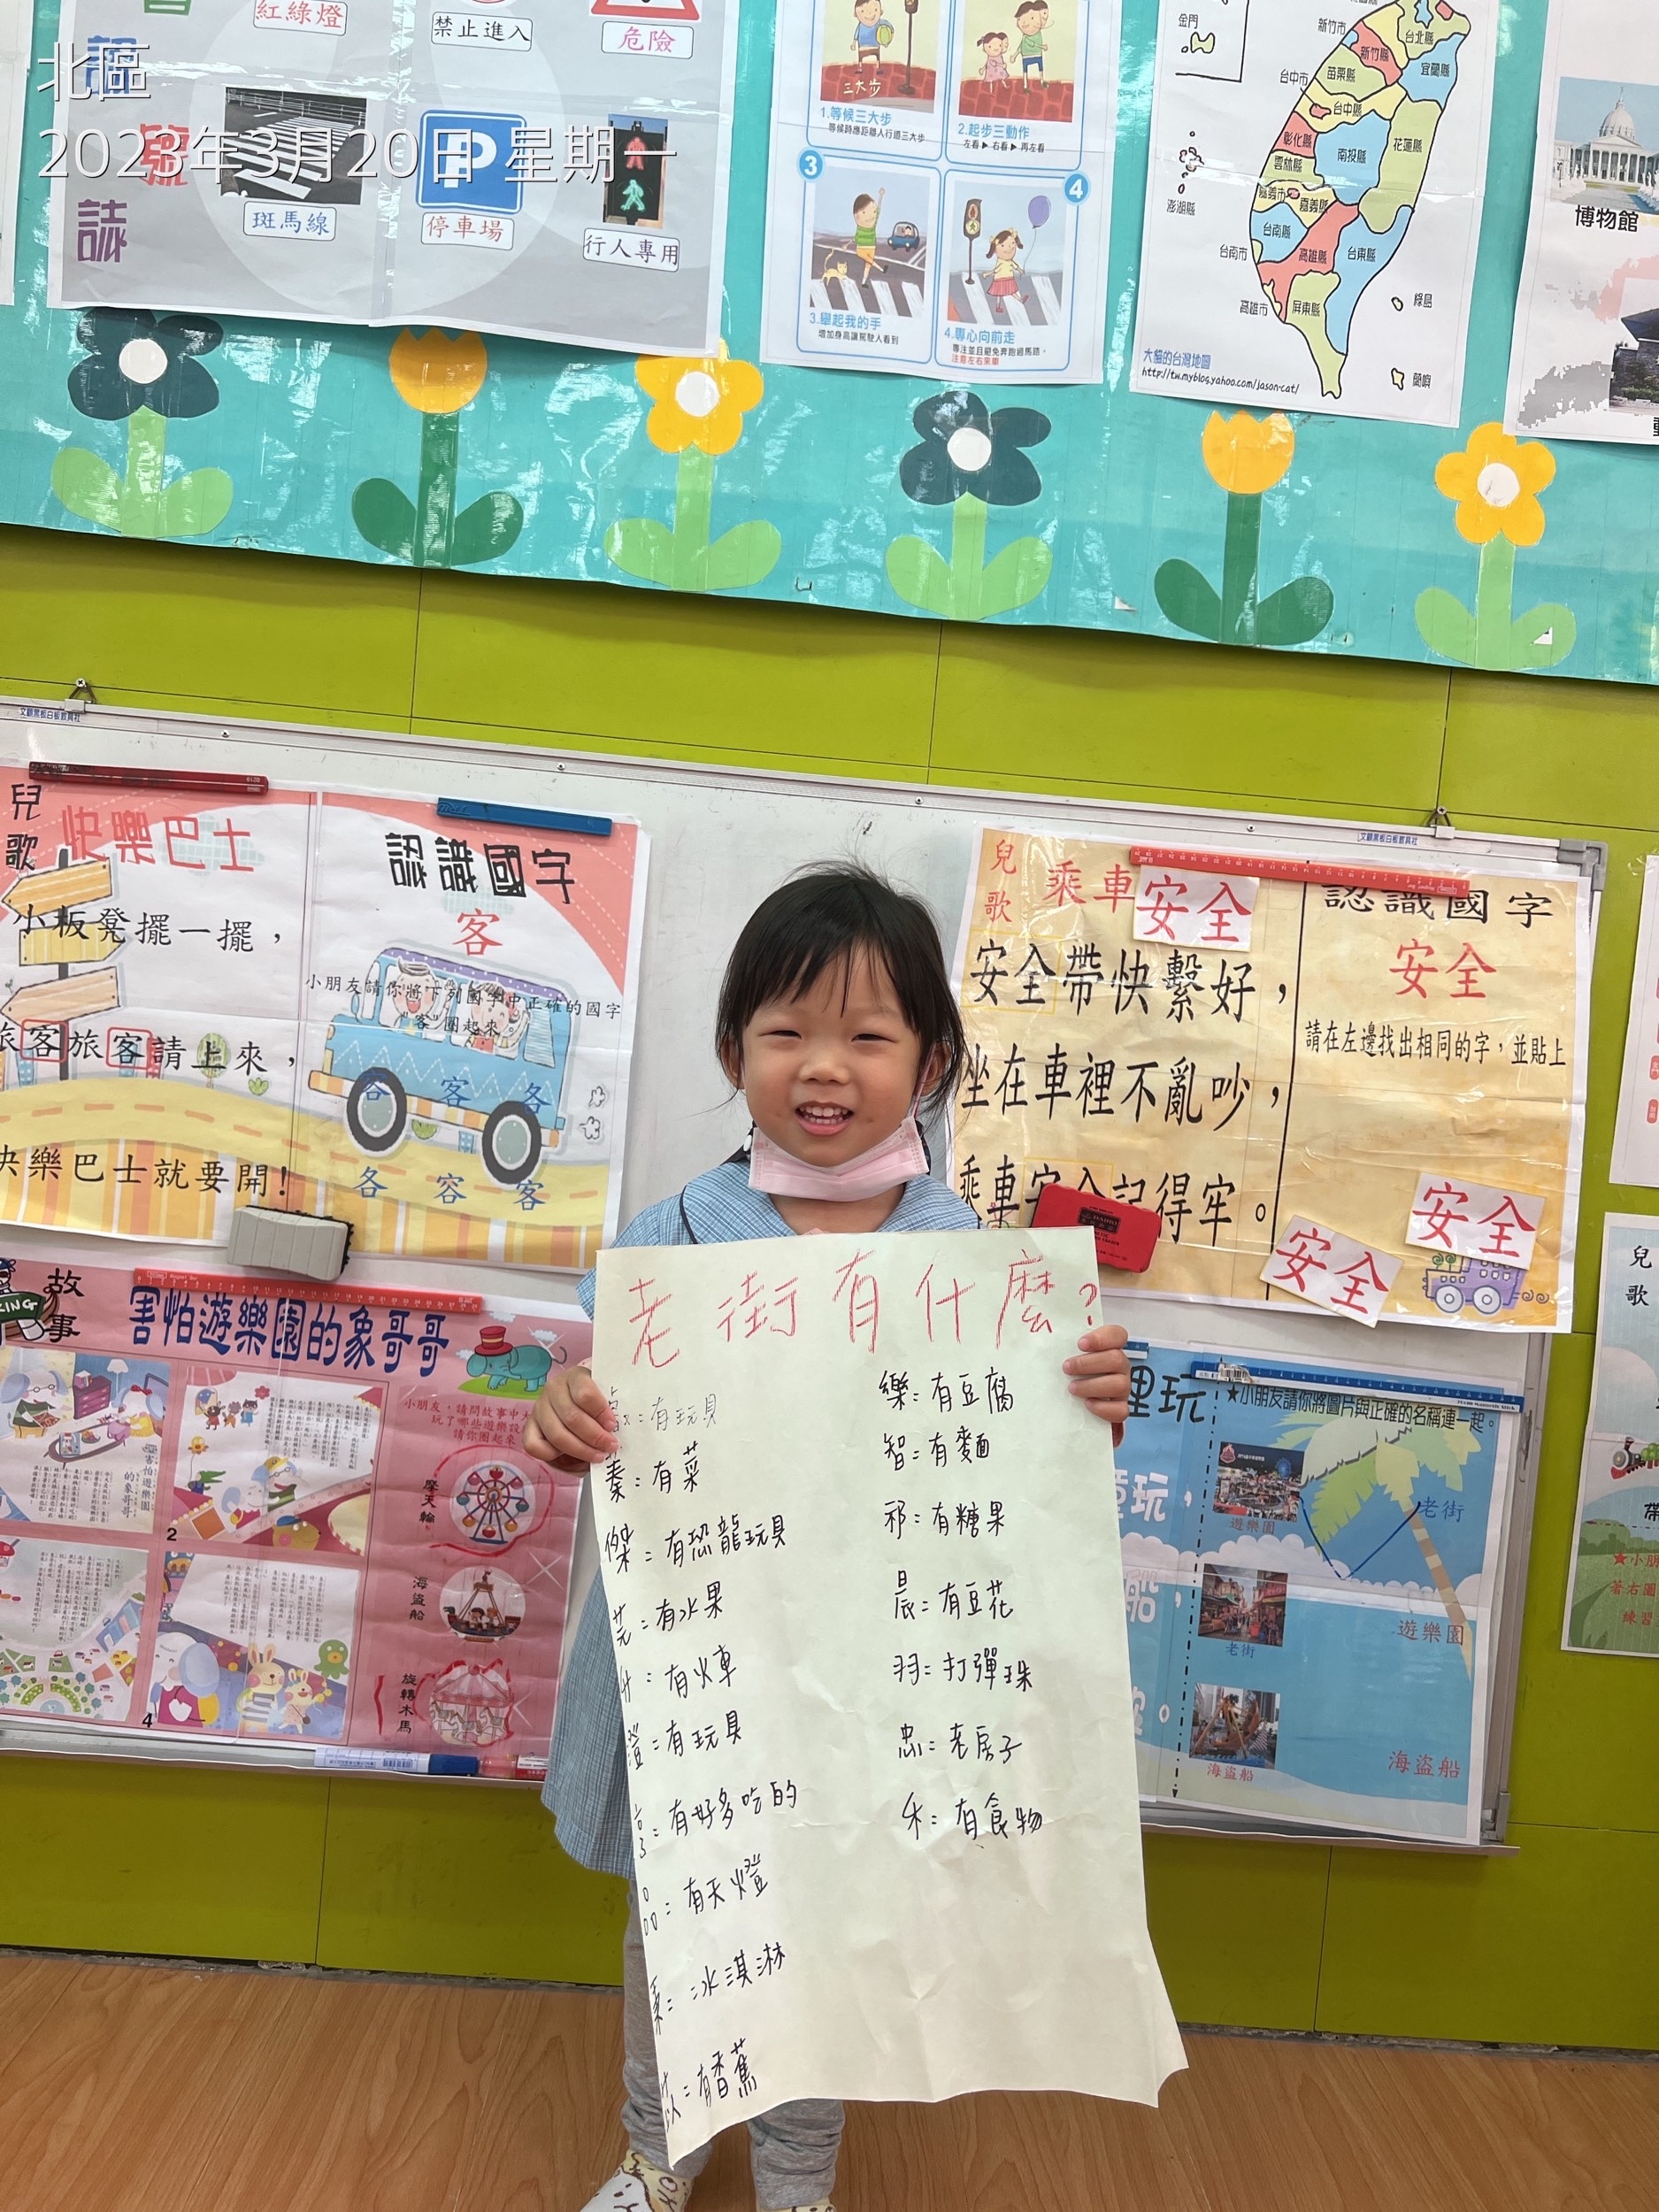 北區
2023年3月20日 星期一
紅綠燈
禁止進入
危險
認
號
誌
斑馬線
停車場
行人專用
三大步
1.等候三大步
等候時應距離人行道三大步
2.起步三動作
左看▶右看▶再左看
3
3.舉起我的手
增加身高讓駕駛人看到
4
4.專心向前走
專注並且避免奔跑過馬路。
注意左右來車
金門
新竹市
台北縣
新竹縣
宜蘭縣
苗栗縣
台中市
台中縣
彰化縣
南投縣
花蓮縣
雲林縣
澎湖縣
嘉義市
嘉義縣
台南縣
台南市
高雄縣
台東縣
高雄市
屏東縣
綠島
蘭嶼
大貓的台灣地圖
http://tw.myblog.yahoo.com/jason-cat/
博物館
兒歌
快樂巴士
小板凳擺一擺，
旅客旅客請上來，
快樂巴士就要開!
認識國字
客
小朋友請你將下列國字中正確的國字
"客"圈起來。
客 客 各
各 容 客
兒歌
乘車安全
安全帶快繫好，
坐在車裡不亂吵，
乘車安全記得牢。
認識國字
安全
請在左邊找出相同的字，並貼上
安全
安全
故事
害怕遊樂園的象哥哥
小朋友，請問故事中大
玩了哪些遊樂設
請你圈起來
摩天輪
海盜船
旋轉木馬
2
4
老街有什麼?
:有玩具
蓁:有菜
傑:有恐龍玩具
芫:有水果
:有火車
澄:有玩具
:有好多吃的
:有天燈
:冰淇淋
苡:有香蕉
樂:有豆腐
智:有麵
祁:有糖果
晨:有豆花
羽:打彈珠
忠:老房子
禾:有食物
裡玩
★小朋友請你將圖片與正確的名稱連一起。
童玩，
船，
遊樂園
老街
老街
遊樂園
海盜船
海盜船
兒歌